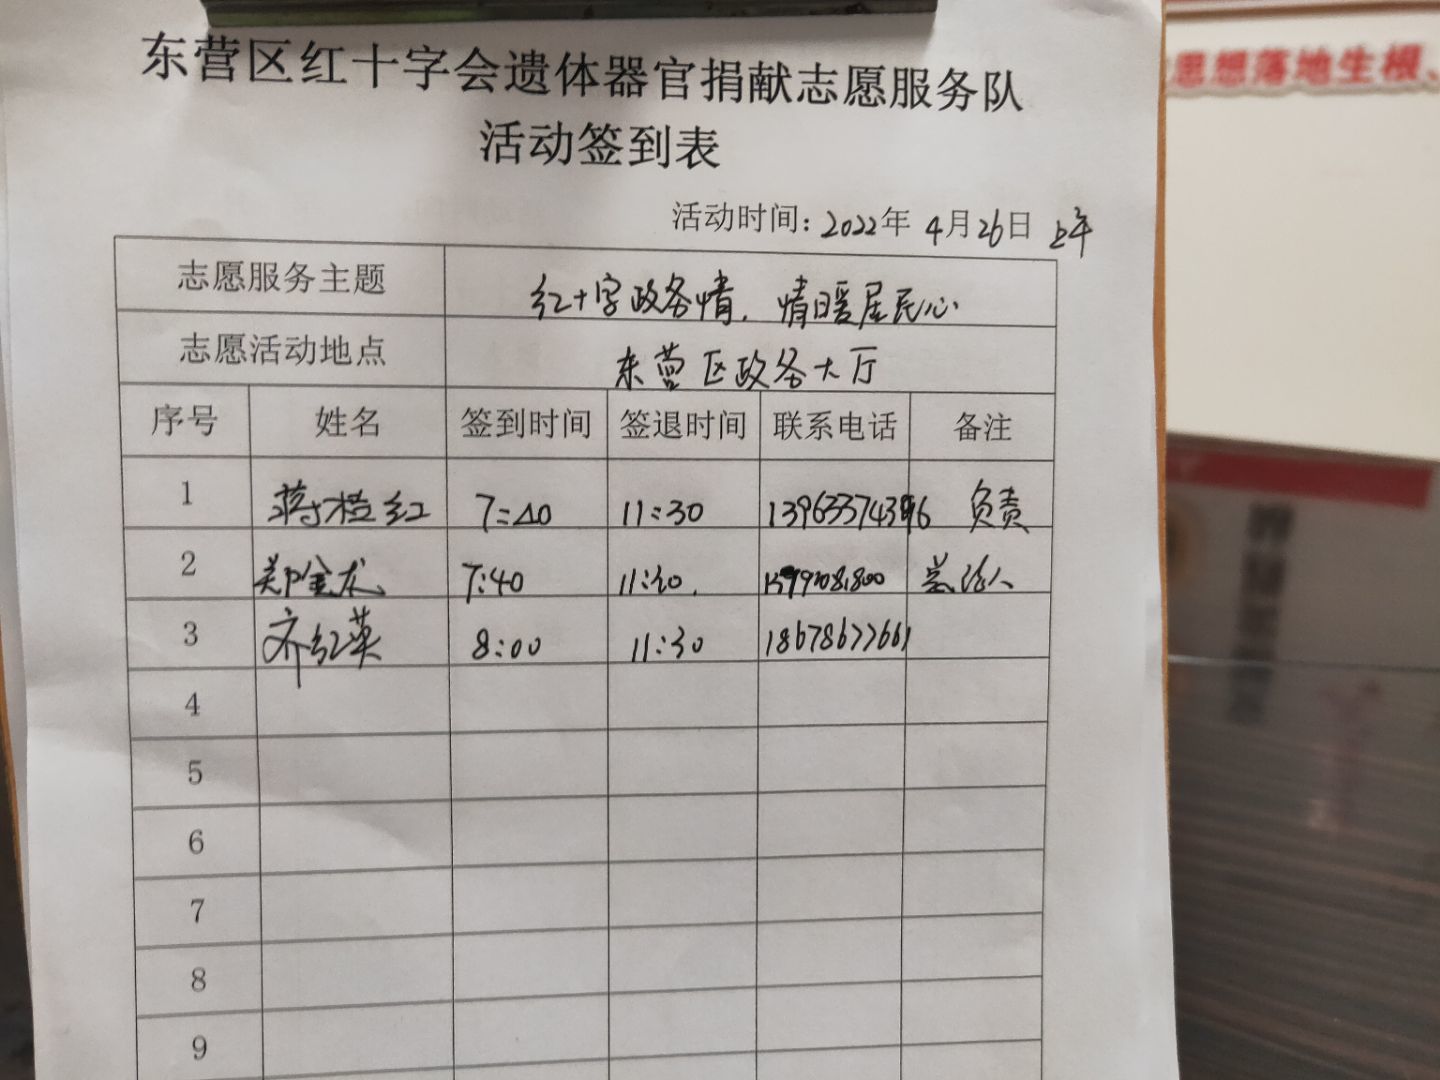 东营区红十字会遗体器官捐献志愿服务队
活动签到表
活动时间：2022年 4月26日 上午
志愿服务主题 红十字政务情，情暖居民心
志愿活动地点 东营区政务大厅
序号 姓名 签到时间 签退时间 联系电话 备注
1 蒋桂红 7:40 11:30 负责
2 郑金龙 7:40
3 齐红英 8:00 11:30 18678677661
4
5
6
7
8
9
思想落地生根、